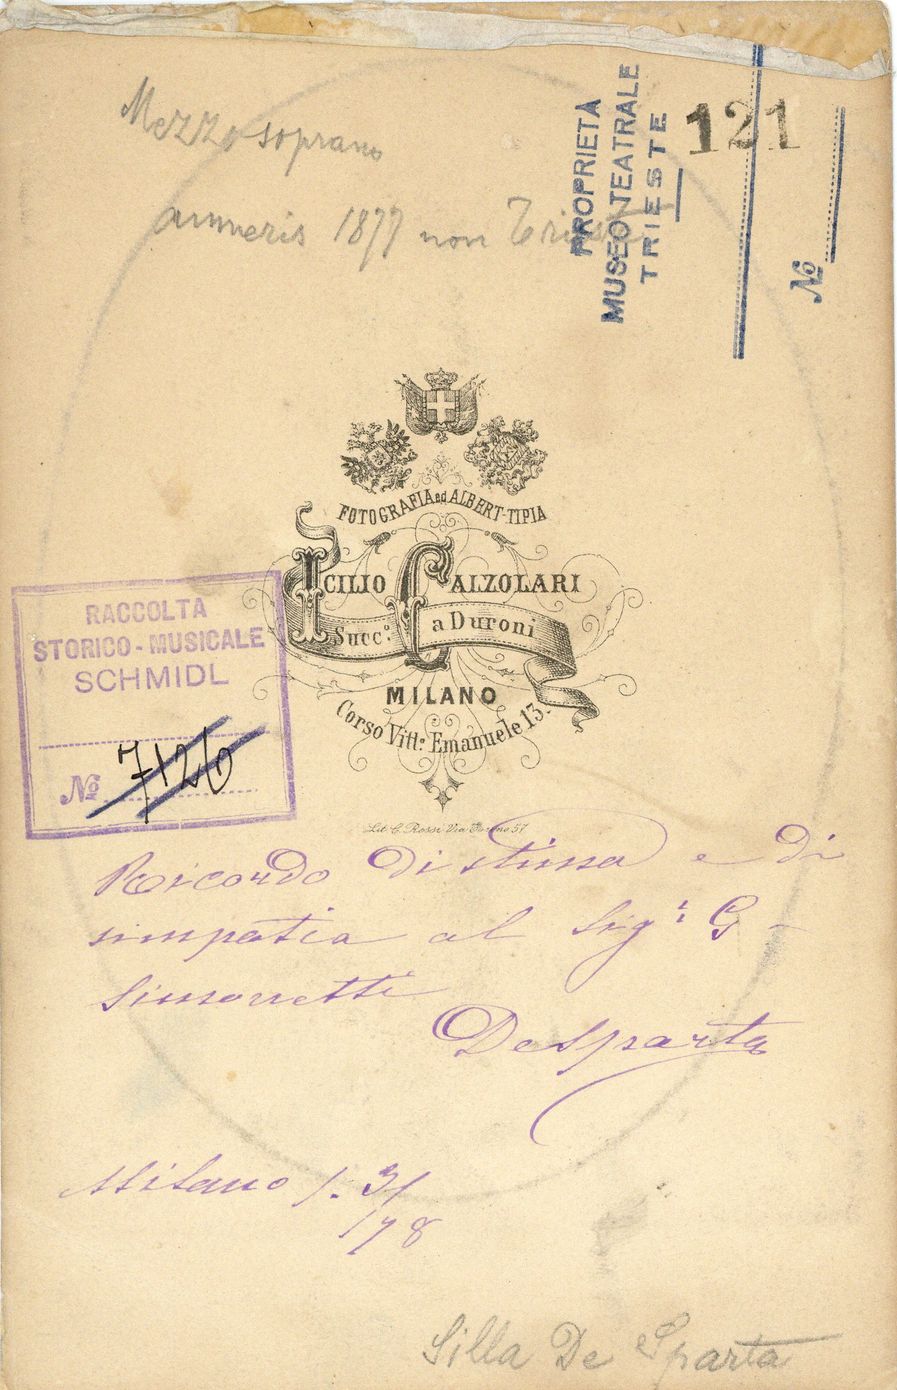 Mezzosoprano
amneris 1877 non Trieste
PROPRIETÀ
MUSEO TEATRALE
TRIESTE
121
No
FOTOGRAFIA ed ALBERT-TIPIA
ICILIO CALZOLARI
Succ.º a Duroni
MILANO
Corso Vitt.º Emanuele 13.
Lit. C. Rossi Via 57
RACCOLTA
STORICO-MUSICALE
SCHMIDL
No 7126
Ricordo di stima e di
simpatia al Sig.r G
Simonetti
De Sparta
Milano 1. 3/
78
Silla De Sparta